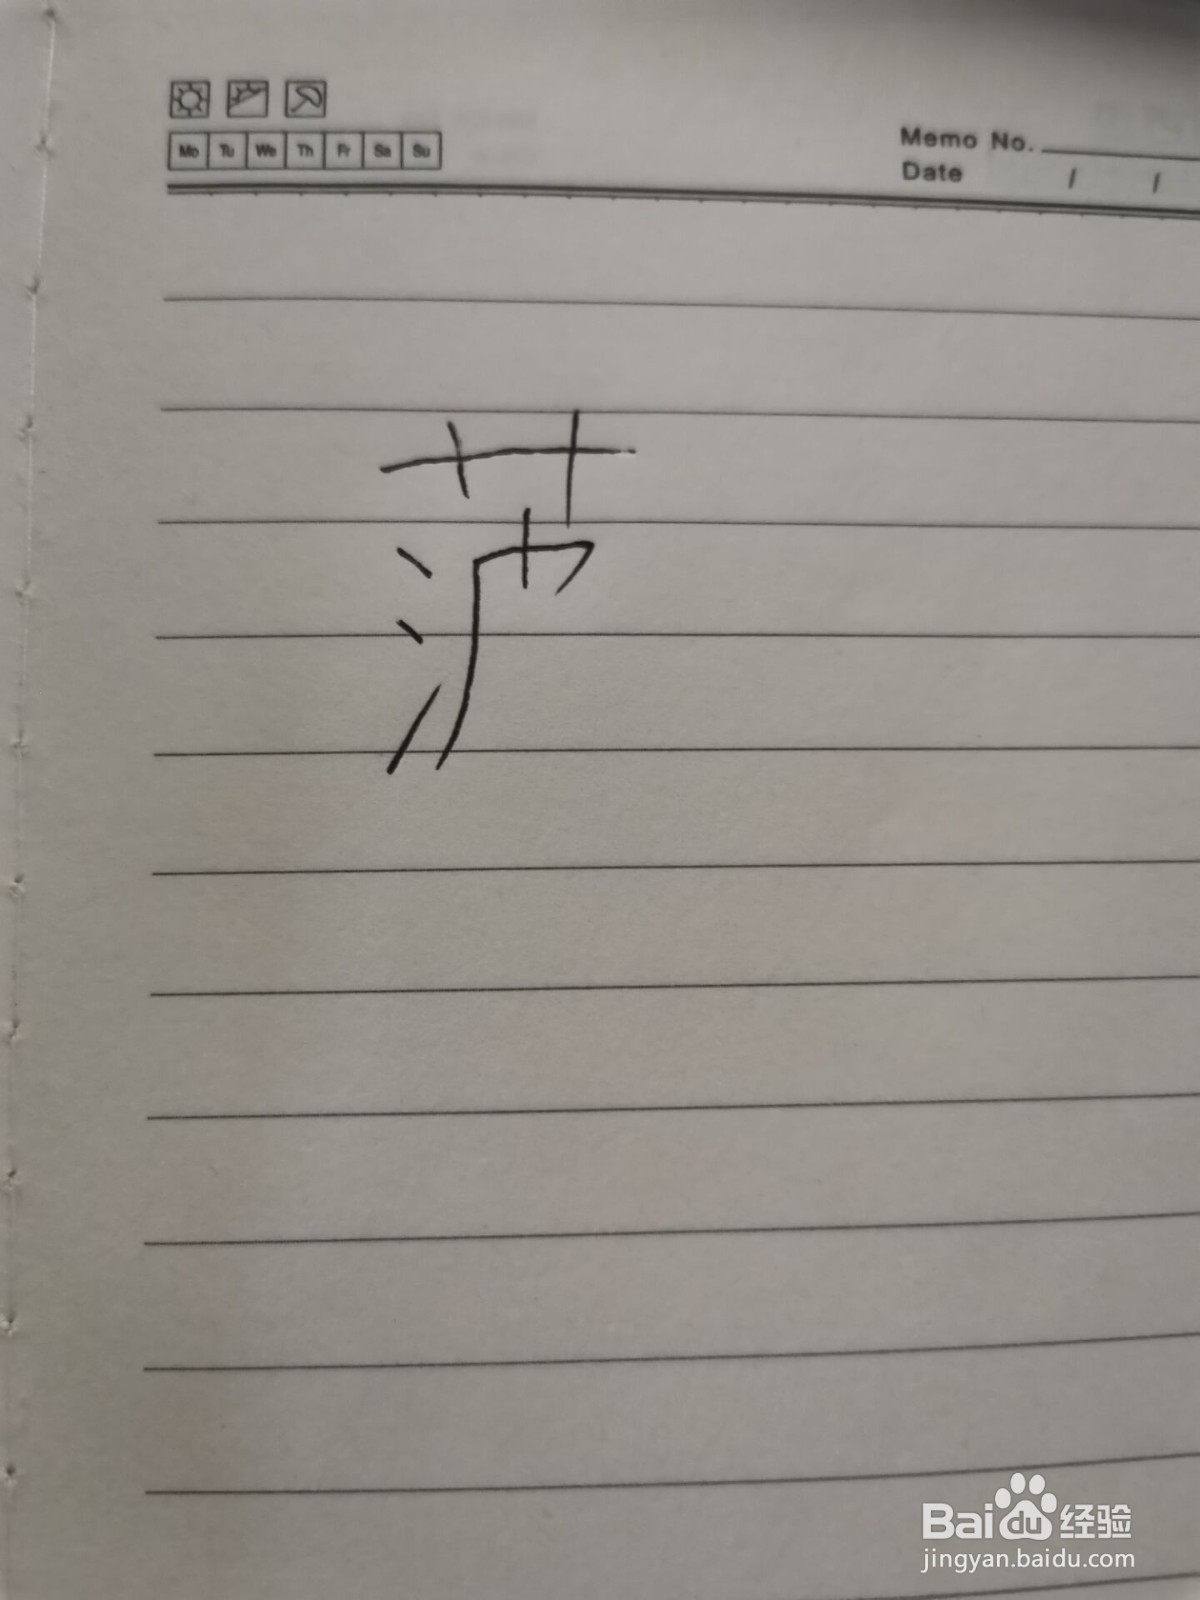 Mo Tu We Th Fr Sa Su
Memo No.
Date / /
Baidu经验
jingyan.baidu.com